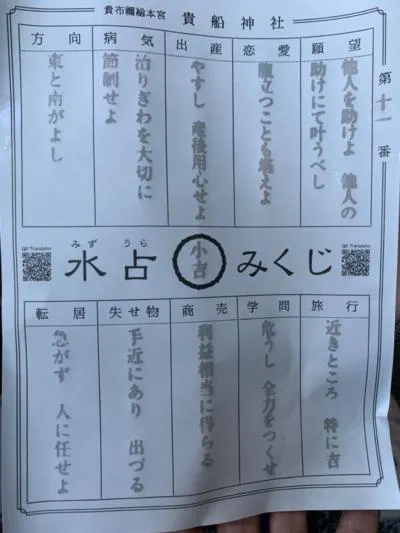 貴布禰総本宮 貴船神社
第十一番
願望
他人を助けよ 他人の
助けにて叶うべし
恋愛
腹立つことも堪えよ
出産
やすし 産後用心せよ
病気
治りぎわを大切に
節制せよ
方向
東と南がよし
QR Translator
みずうら
水占
小吉
みくじ
QR Translator
旅行
近きところ 特に吉
学問
危うし 全力をつくせ
商売
利益相当に得らる
失せ物
手近にあり 出づる
転居
急がず 人に任せよ